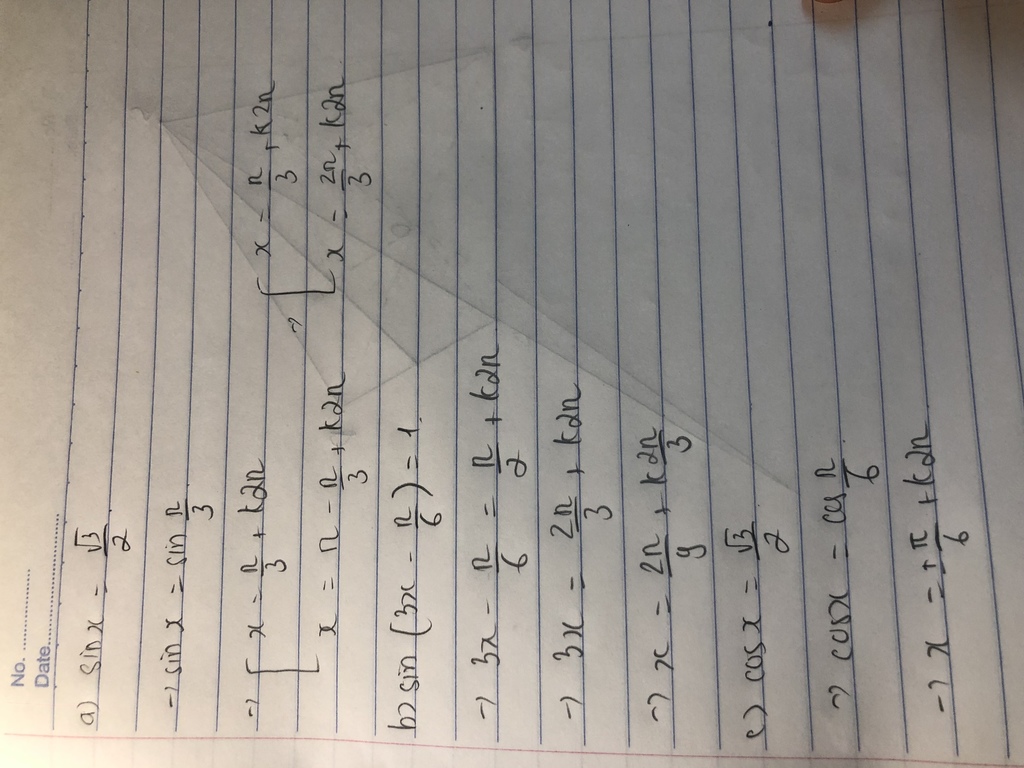 No. ....................
Date....................
a) sin x = √3/2
→ sin x = sin π/3
→ [ x = π/3 + k2π
x = π - π/3 + k2π
→ [ x = π/3 + k2π
x = 2π/3 + k2π
b) sin (3x - π/6) = 1
→ 3x - π/6 = π/2 + k2π
→ 3x = 2π/3 + k2π
→ x = 2π/9 + k2π/3
c) cos x = √3/2
→ cos x = cos π/6
→ x = ±π/6 + k2π